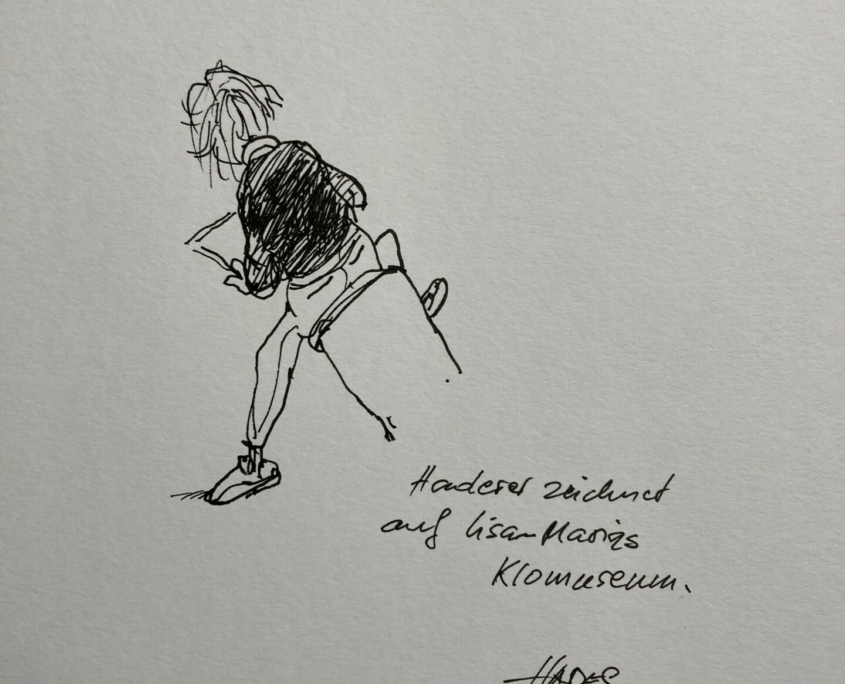 Haderer zeichnet
auf Lisa-Marias
Klomuseum.
HADER